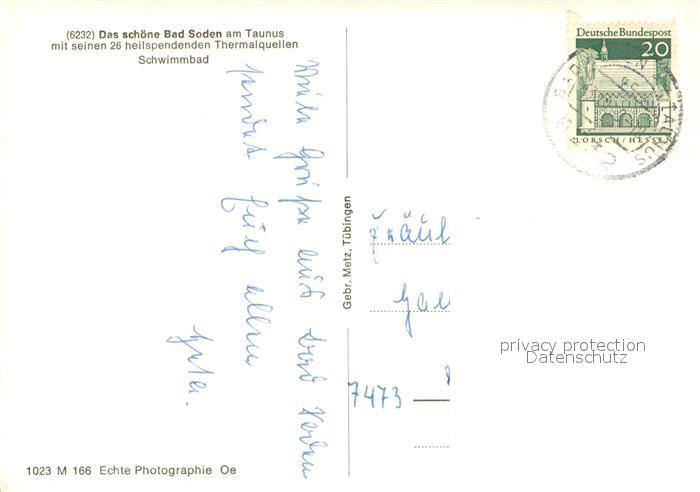 (6232) Das schöne Bad Soden am Taunus
mit seinen 26 heilspendenden Thermalquellen
Schwimmbad
Viele Grüße aus Bad Soden
sendet Euch allen
Gebr. Metz, Tübingen
Deutsche Bundespost
20
LORSCH/HESSEN
Fräul
7473
privacy protection
Datenschutz
1023 M 166 Echte Photographie Oe